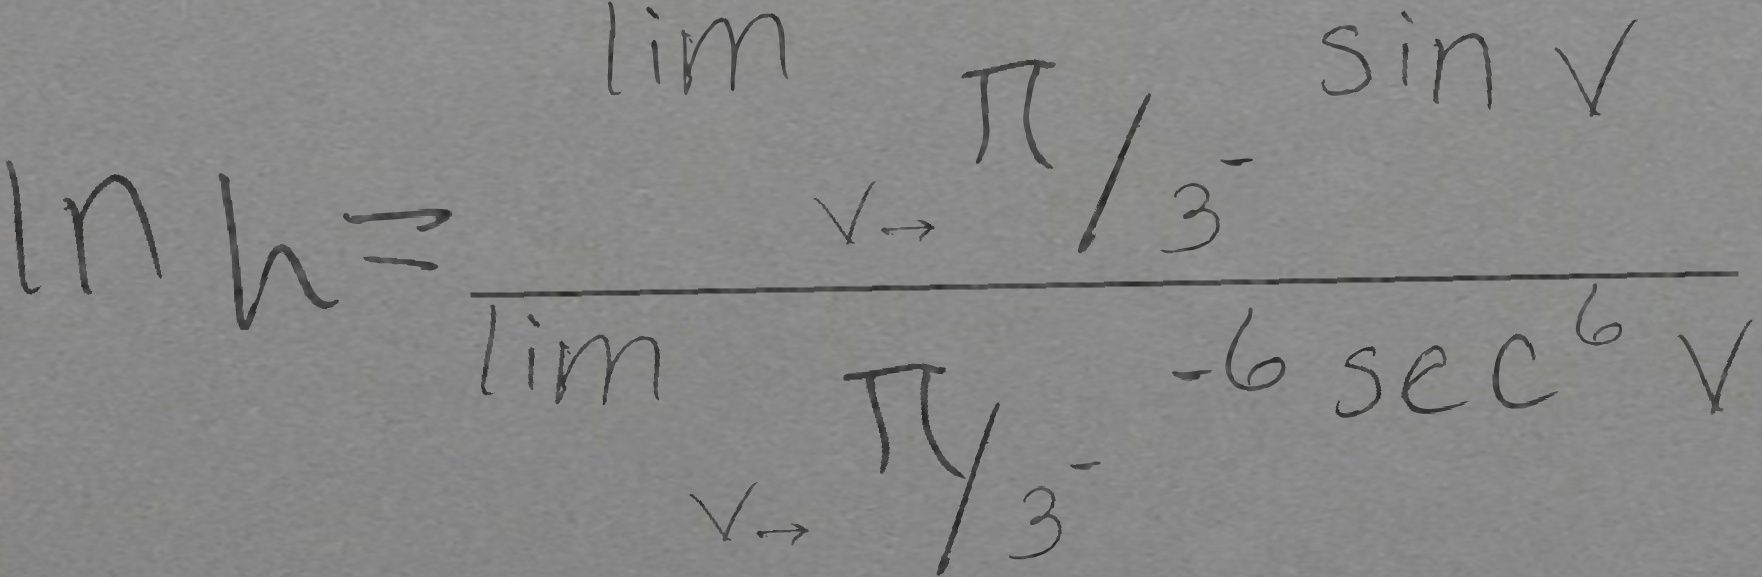 ln h = \frac{\lim_{v \to \pi/3^-} \sin v}{\lim_{v \to \pi/3^-} -6 \sec^6 v}